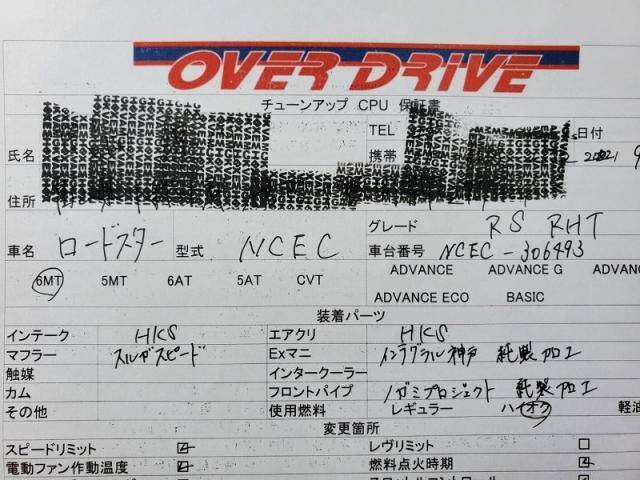 OVER DRIVE
チューンアップ CPU 保証書
TEL 日付
氏名 携帯 2021 9
住所
グレード RS RHT
車名 ロードスター 型式 NCEC 車台番号 NCEC-306493
6MT 5MT 6AT 5AT CVT ADVANCE ADVANCE G ADVAN
ADVANCE ECO BASIC
装着パーツ
インテーク HKS エアクリ HKS
マフラー スルガスピード Exマニ インテグラル神戸 純製加工
触媒 インタークーラー
カム フロントパイプ ノガミプロジェクト 純製加工
その他 使用燃料 レギュラー ハイオク 軽油
変更箇所
スピードリミット レヴリミット
電動ファン作動温度 燃料点火時期
スロットルコントロール